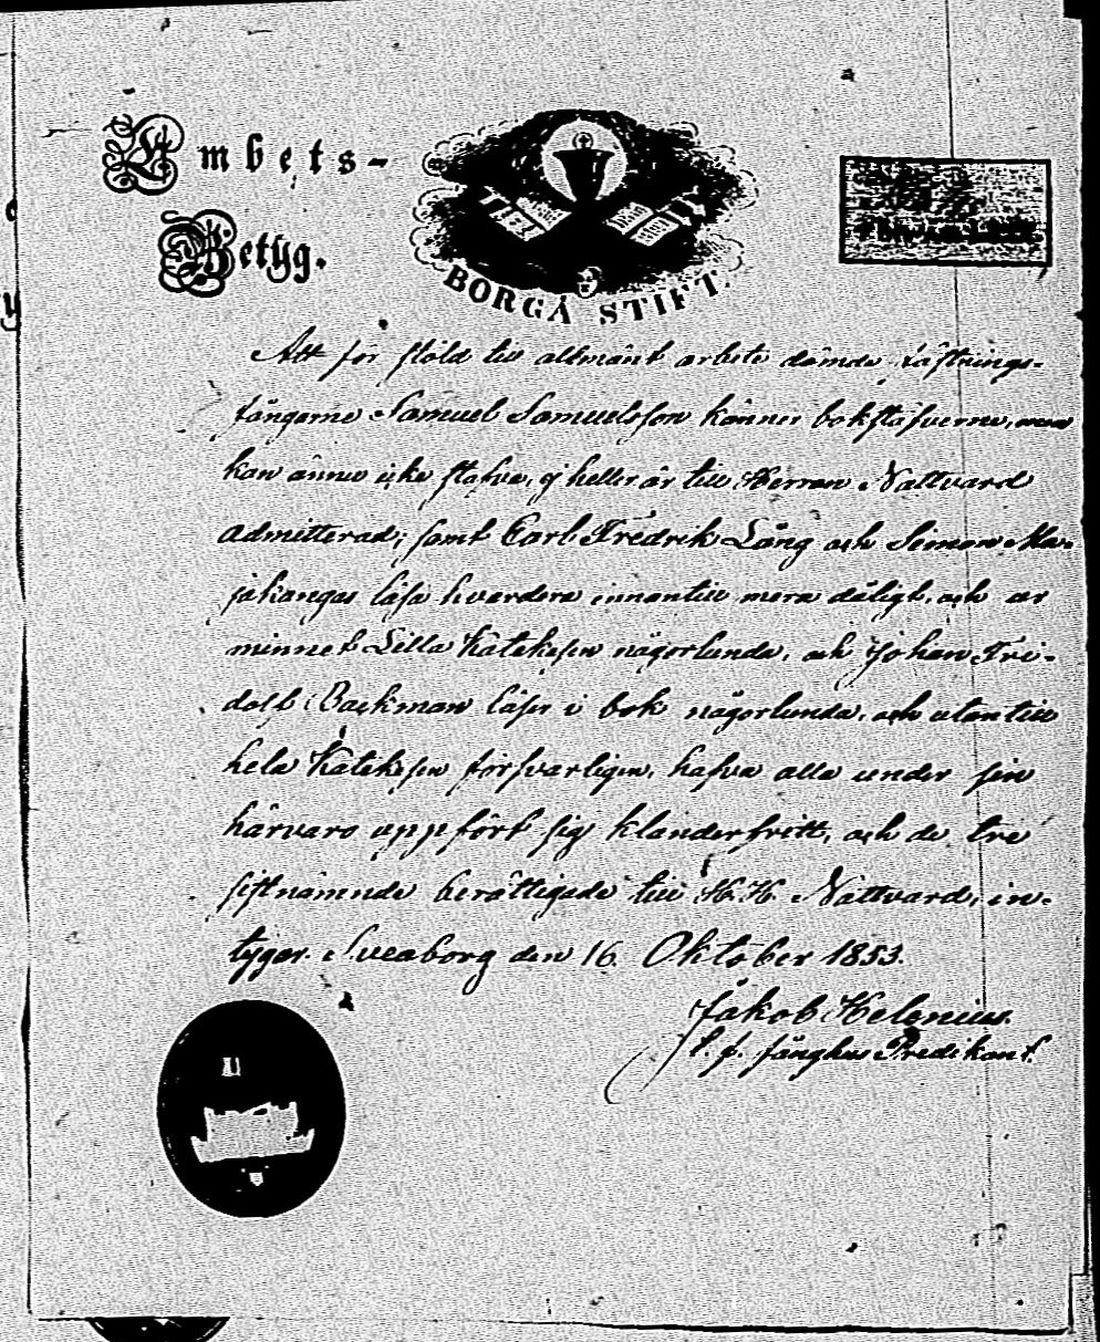 Embets-
Betyg.
BORGÅ STIFT.
Att för stöld till allmänt arbete dömde fästnings-
fångarne Samuel Samuelsson känner bokstäfverne, men
kan ännu icke stafva, ej heller är till Herrans Nattvard
admitterad; samt Carl Fredrik Lång och Simon Ma-
jakangas läsa hvardera innantill mera dåligt, och ur
minnet Lilla Katekesen någorlunda, och Johan Fri-
dolf Backman läser i bok någorlunda, och utantill
hela Katekesen försvarligen, hafva alla under sin
härvaro uppfört sig klanderfritt, och de tre
sistnämnde berättigade till H. H. Nattvard, in-
tygar. Sveaborg den 16. Oktober 1853.
Jakob Helenius.
t. f. fånghus Predikant.